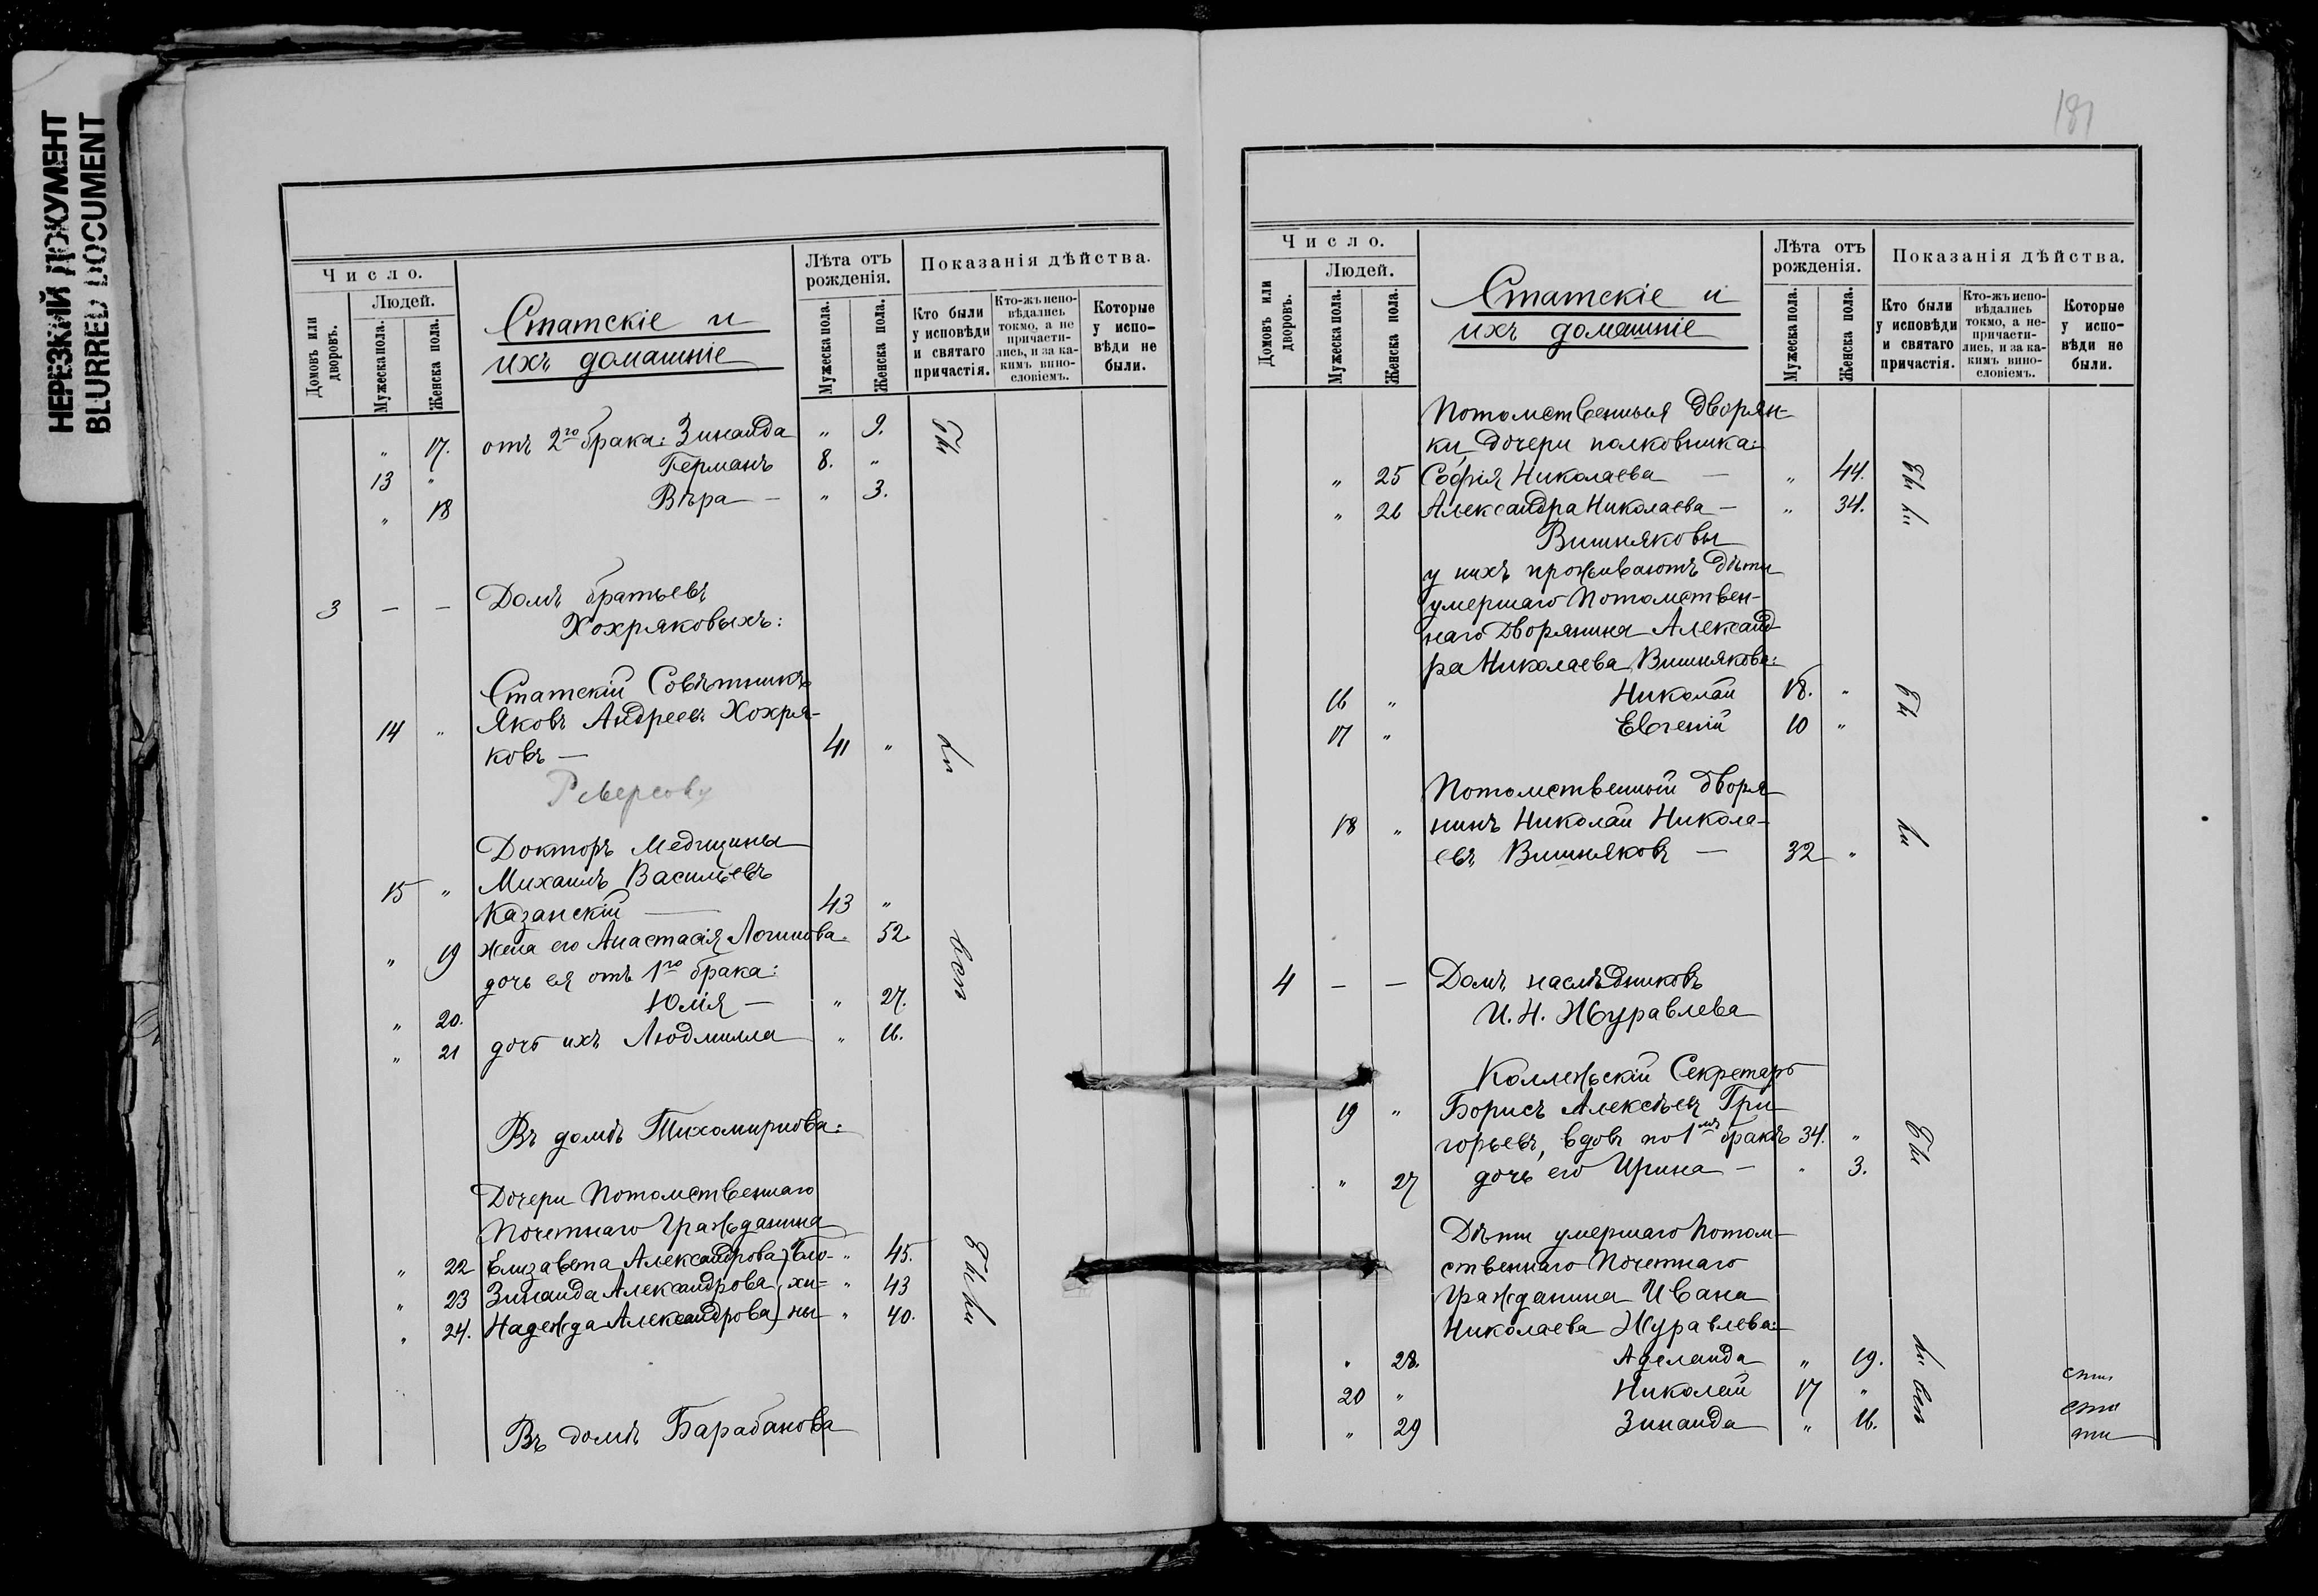 НЕРЕЗКИЙ ДОКУМЕНТ
BLURRED DOCUMENT
Число.
Людей.
Домовъ или дворовъ.
Мужеска пола.
Женска пола.
Статскіе и
ихъ домашніе
Лѣта отъ рожденія.
Мужеска пола.
Женска пола.
Показанія дѣйства.
Кто были у исповѣди и святаго причастія.
Кто-жъ исповѣдались токмо, а не причастились, и за какимъ винословіемъ.
Которые у исповѣди не были.
" 17. отъ 2го брака: Зинаида " 9.
13 " Германъ 8. "
" 18 Вѣра — " 3.
3 — — Домъ братьевъ
Хохряковыхъ:
Статскій Совѣтникъ
14 " Яковъ Андреевъ Хохря-
ковъ — 41 "
Докторъ Медицины
15 " Михаилъ Васильевъ
Казанскій — 43 "
" 19 жена его Анастасія Логинова 52.
дочь ея отъ 1го брака:
" 20. Юлія — " 27.
" 21 дочь ихъ Людмилла " 16.
Въ домѣ Тихомирнова:
Дочери Потомственнаго
Почетнаго Гражданина
" 22 Елизавета Александрова } Бло- " 45.
" 23 Зинаида Александрова } хи- " 43
" 24. Надежда Александрова } ны " 40.
Въ домѣ Барабанова
181
Число.
Людей.
Домовъ или дворовъ.
Мужеска пола.
Женска пола.
Статскіе и
ихъ домашніе
Лѣта отъ рожденія.
Мужеска пола.
Женска пола.
Показанія дѣйства.
Кто были у исповѣди и святаго причастія.
Кто-жъ исповѣдались токмо, а не причастились, и за какимъ винословіемъ.
Которые у исповѣди не были.
Потомственныя Дворян-
ки, дочери полковника:
" 25 Софія Николаева — " 44.
" 26 Александра Николаева — " 34.
Вишняковы
у нихъ проживаютъ дѣти
умершаго Потомствен-
наго Дворянина Александ-
ра Николаева Вишнякова:
16 " Николай 18. "
17 " Евгеній 10 "
Потомственный Дворя-
18 " нинъ Николай Никола-
евъ Вишняковъ — 32 "
4 — — Домъ наслѣдниковъ
И. Н. Журавлева
Коллежскій Секретарь
19 " Борисъ Алексѣевъ Гри-
горьевъ, вдовъ по 1мъ бракѣ 34. "
" 27 дочь его Ирина — " 3.
Дѣти умершаго Потом-
ственнаго Почетнаго
Гражданина Ивана
Николаева Журавлева:
" 28. Аделаида " 19.
20 " Николай 17 "
" 29 Зинаида " 16.